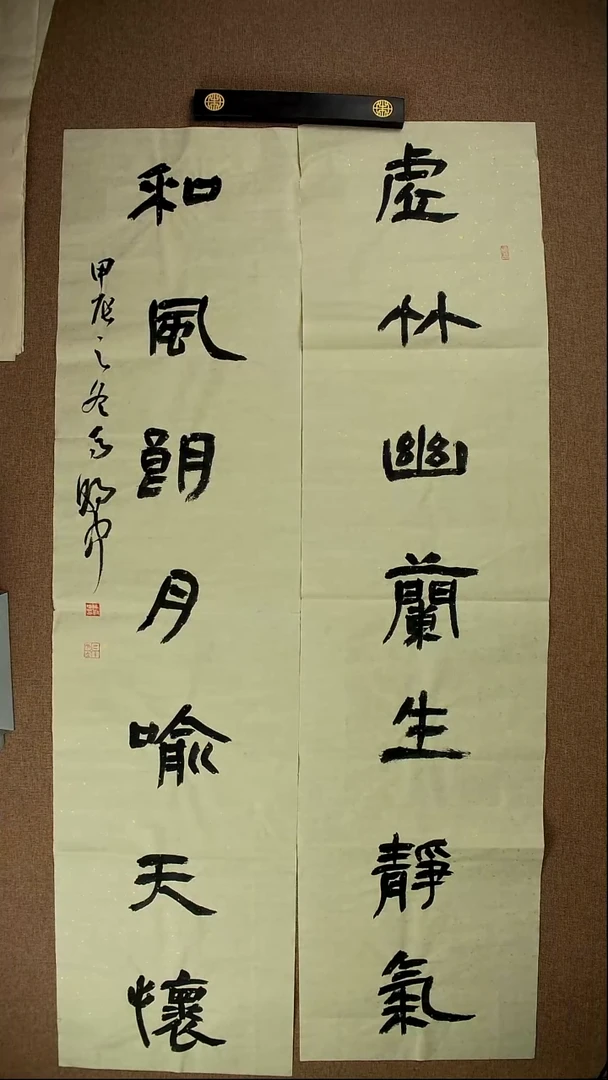 虚竹幽蘭生靜氣
和風朗月喻天懷
甲辰之冬